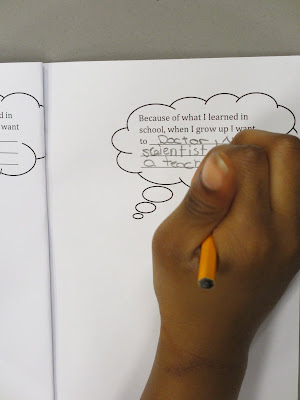 d in
want
Because of what I learned in
school, when I grow up I want
to Doctor,
scientist
a teach